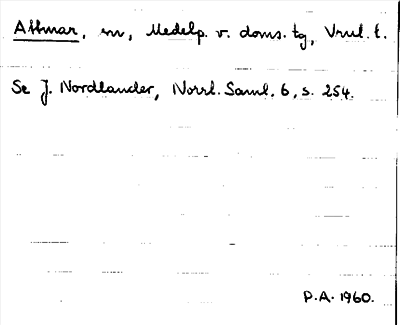 Attmar, sn, Medelp. v. doms. tg, Vrnl. l.
Se J. Nordlander, Norrl. Saml. 6, s. 254.
P.A. 1960.